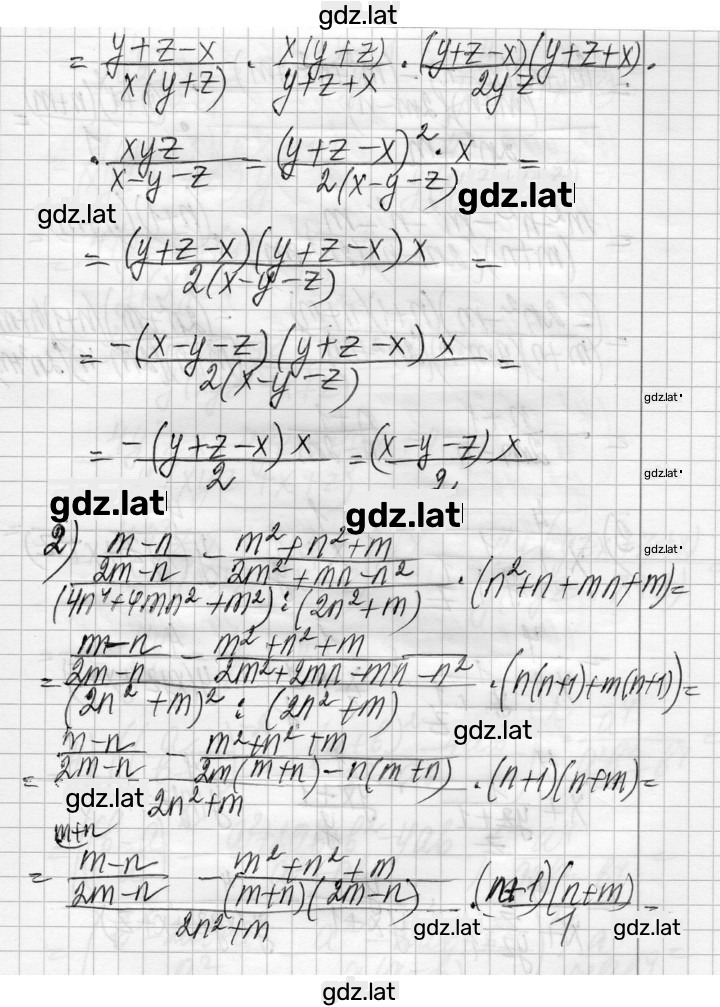 gdz.lat
= (y+z-x)/(x(y+z)) · (x(y+z))/(y+z+x) · ((y+z-x)(y+z+x))/(2yz) ·
· (xyz)/(x-y-z) = ((y+z-x)² · x)/(2(x-y-z)) =
gdz.lat gdz.lat
= ((y+z-x)(y+z-x)x)/(2(x-y-z)) =
= (-(x-y-z)(y+z-x)x)/(2(x-y-z)) =
gdz.lat
= (-(y+z-x)x)/2 = ((x-y-z)x)/2.
gdz.lat
gdz.lat gdz.lat
2) ((m-n)/(2m-n) - (m²+n²+m)/(2m²+mn-n²))/((4n⁴+4mn²+m²):(2n²+m)) · (n²+n+mn+m)=
gdz.lat
= ((m-n)/(2m-n) - (m²+n²+m)/(2m²+2mn-mn-n²))/((2n²+m)² : (2n²+m)) · (n(n+1)+m(n+1))=
gdz.lat
= ((m-n)/(2m-n) - (m²+n²+m)/(2m(m+n)-n(m+n)))/(2n²+m) · (n+1)(n+m)=
gdz.lat
m+n
= ((m-n)/(2m-n) - (m²+n²+m)/((m+n)(2m-n)))/(2n²+m) · ((n+1)(n+m))/1 =
gdz.lat gdz.lat
gdz.lat